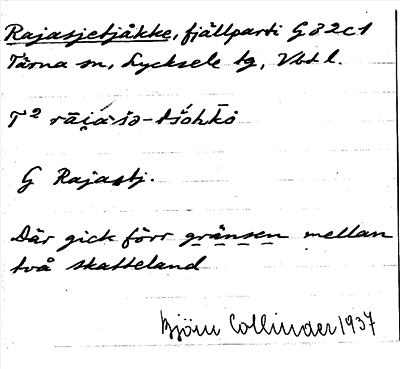 Rajasjetjåkke, fjällparti G32c1
Tärna sn, Lycksele tg, Vbt l.
G Rajastj.
Där gick förr gränsen mellan
två skatteland
Björn Collinder 1937